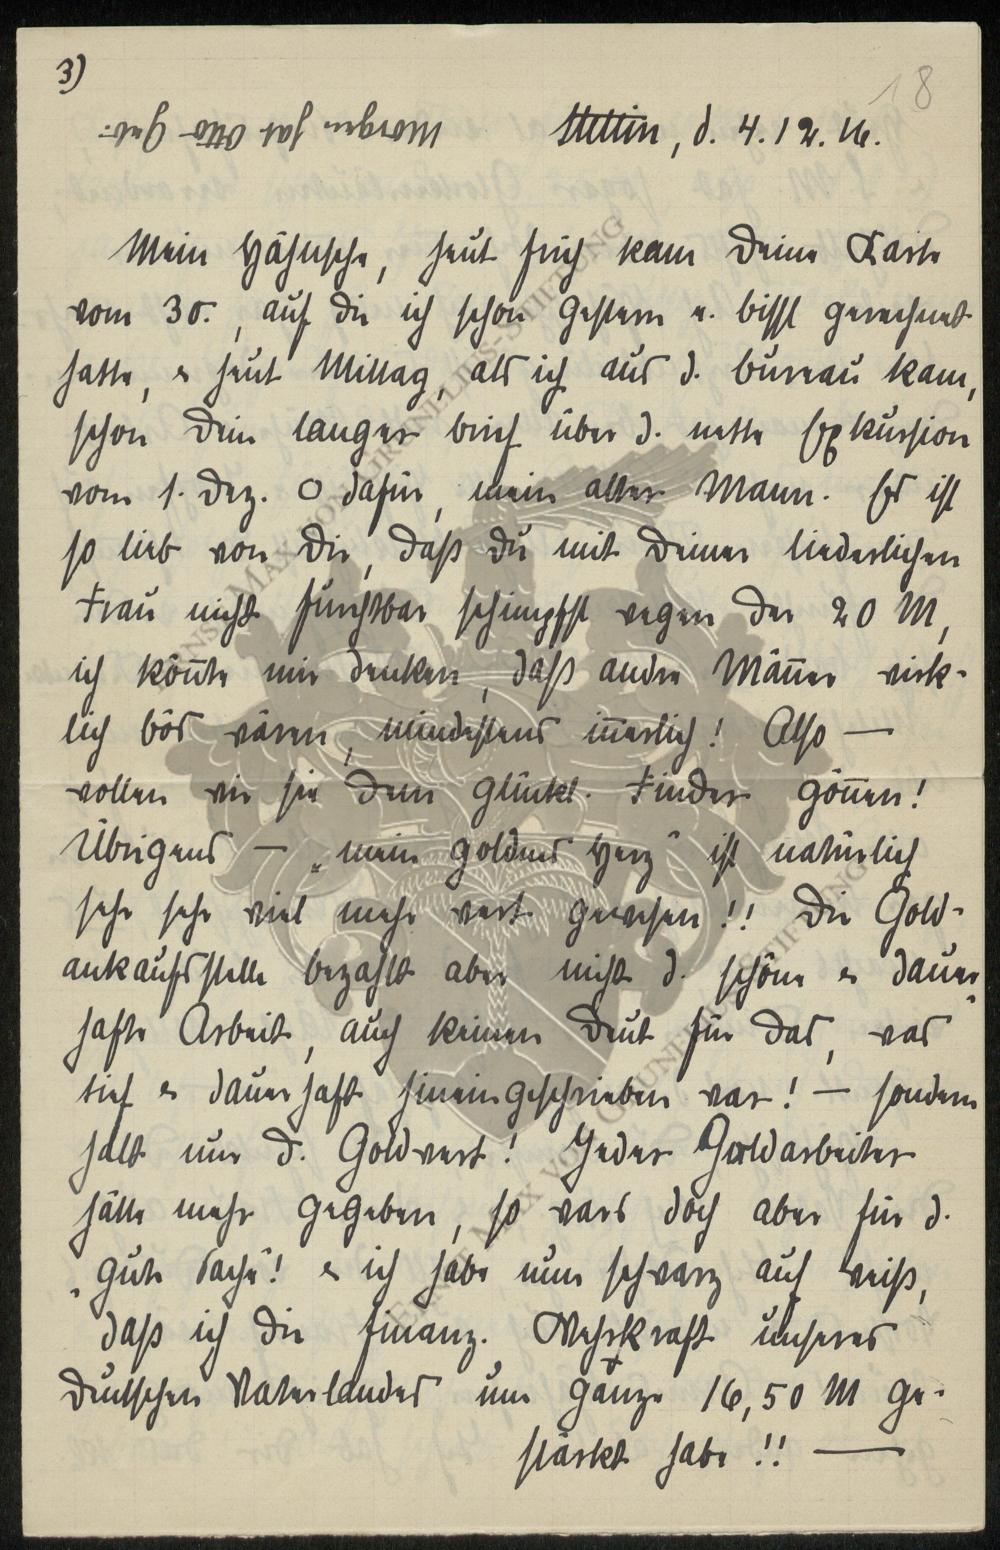 3)
18
Morgen hat Otto Geb.
Stettin, d. 4.12.16.
Mein Hähnsche, heut früh kam Deine Karte
vom 30., auf die ich schon gestern e. bissl gerechnet
hatte, & heut Mittag, als ich aus d. bureau kam,
schon Dein langer brief über d. nette Exkursion
vom 1. Dez. O dafür, mein alter Mann. Es ist
so lieb von Dir, daß Du mit Deiner liederlichen
Frau nicht furchtbar schimpfst wegen der 20 M,
ich kön̅te mir denken, daß andre Män̅er wirk-
lich bös wären, mindestens in̅erlich! Also —
wollen wir sie dem glückl. Finder gön̅en!
Übrigens — „mein goldnes Herz" ist natürlich
sehr sehr viel mehr wert gewesen!! Die Gold-
ankaufsstelle bezahlt aber nicht d. schöne & dauer-
hafte Arbeit, auch keinen Deut für das, was
tief & dauerhaft hineingeschrieben war! — sondern
halt nur d. Goldwert! Jeder Goldarbeiter
hätte mehr gegeben, so wars doch aber für d.
„gute Sache"! & ich habe nun schwarz auf weiß,
daß ich die finanz. Wehrkraft unseres
deutschen Vaterlandes um ganze 16,50 M ge-
stärkt habe!! —
HANS-MAX VON AUNELLIS-STIFTUNG